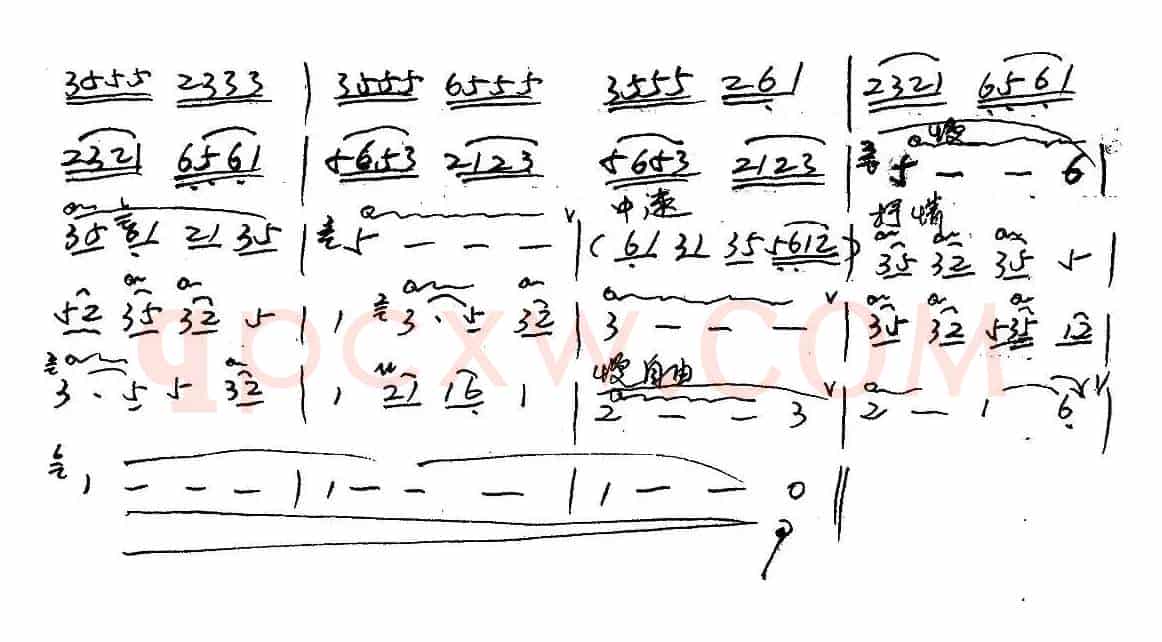 3555 2333 | 3555 6555 3555 261 | 2321 6561
2321 6561 5653 2123 5653 2123 慢 5 — — 6 |
中速 抒情
35 61 21 35 | 5 — — — | ( 61 31 35 5612 ) 35 32 35 5 |
52 35 32 5 | 1 3 · 5 32 | 3 — — — | 35 32 535 12
慢 自由
3 · 5 5 32 | 1 21 16 1 | 2 — — 3 | 2 — 1 6 |
1 — — — | 1 — — — | 1 — — 0 ‖
qpcxw.COM